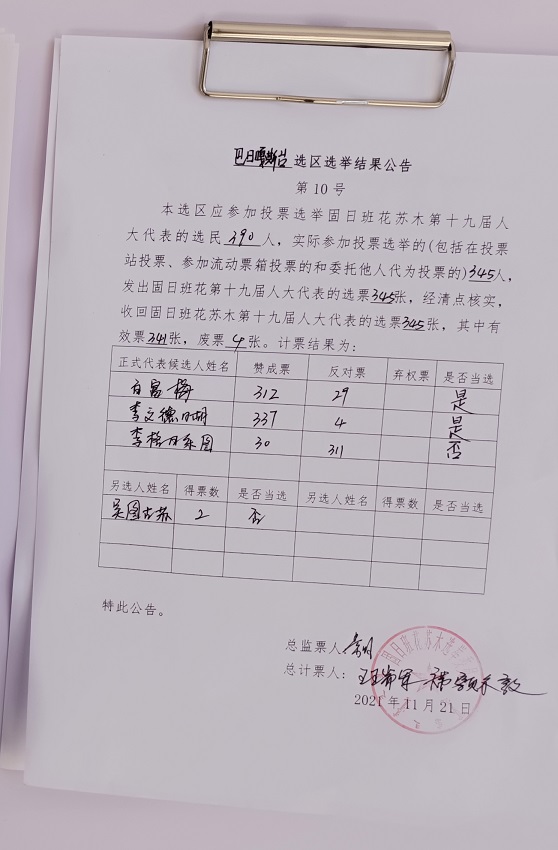 巴日嘎斯台选区选举结果公告
第10号
本选区应参加投票选举固日班花苏木第十九届人
大代表的选民390人，实际参加投票选举的(包括在投票
站投票、参加流动票箱投票的和委托他人代为投票的)345人，
发出固日班花第十九届人大代表的选票345张，经清点核实，
收回固日班花苏木第十九届人大代表的选票345张，其中有
效票341张，废票4张。计票结果为：
正式代表候选人姓名 赞成票 反对票 弃权票 是否当选
白富梅 312 29 是
李文德 337 4 是
李 30 311 否
另选人姓名 得票数 是否当选 另选人姓名 得票数 是否当选
吴图古苏 2 否
特此公告。
总监票人：
总计票人：
2021年11月21日
固日班花苏木选举